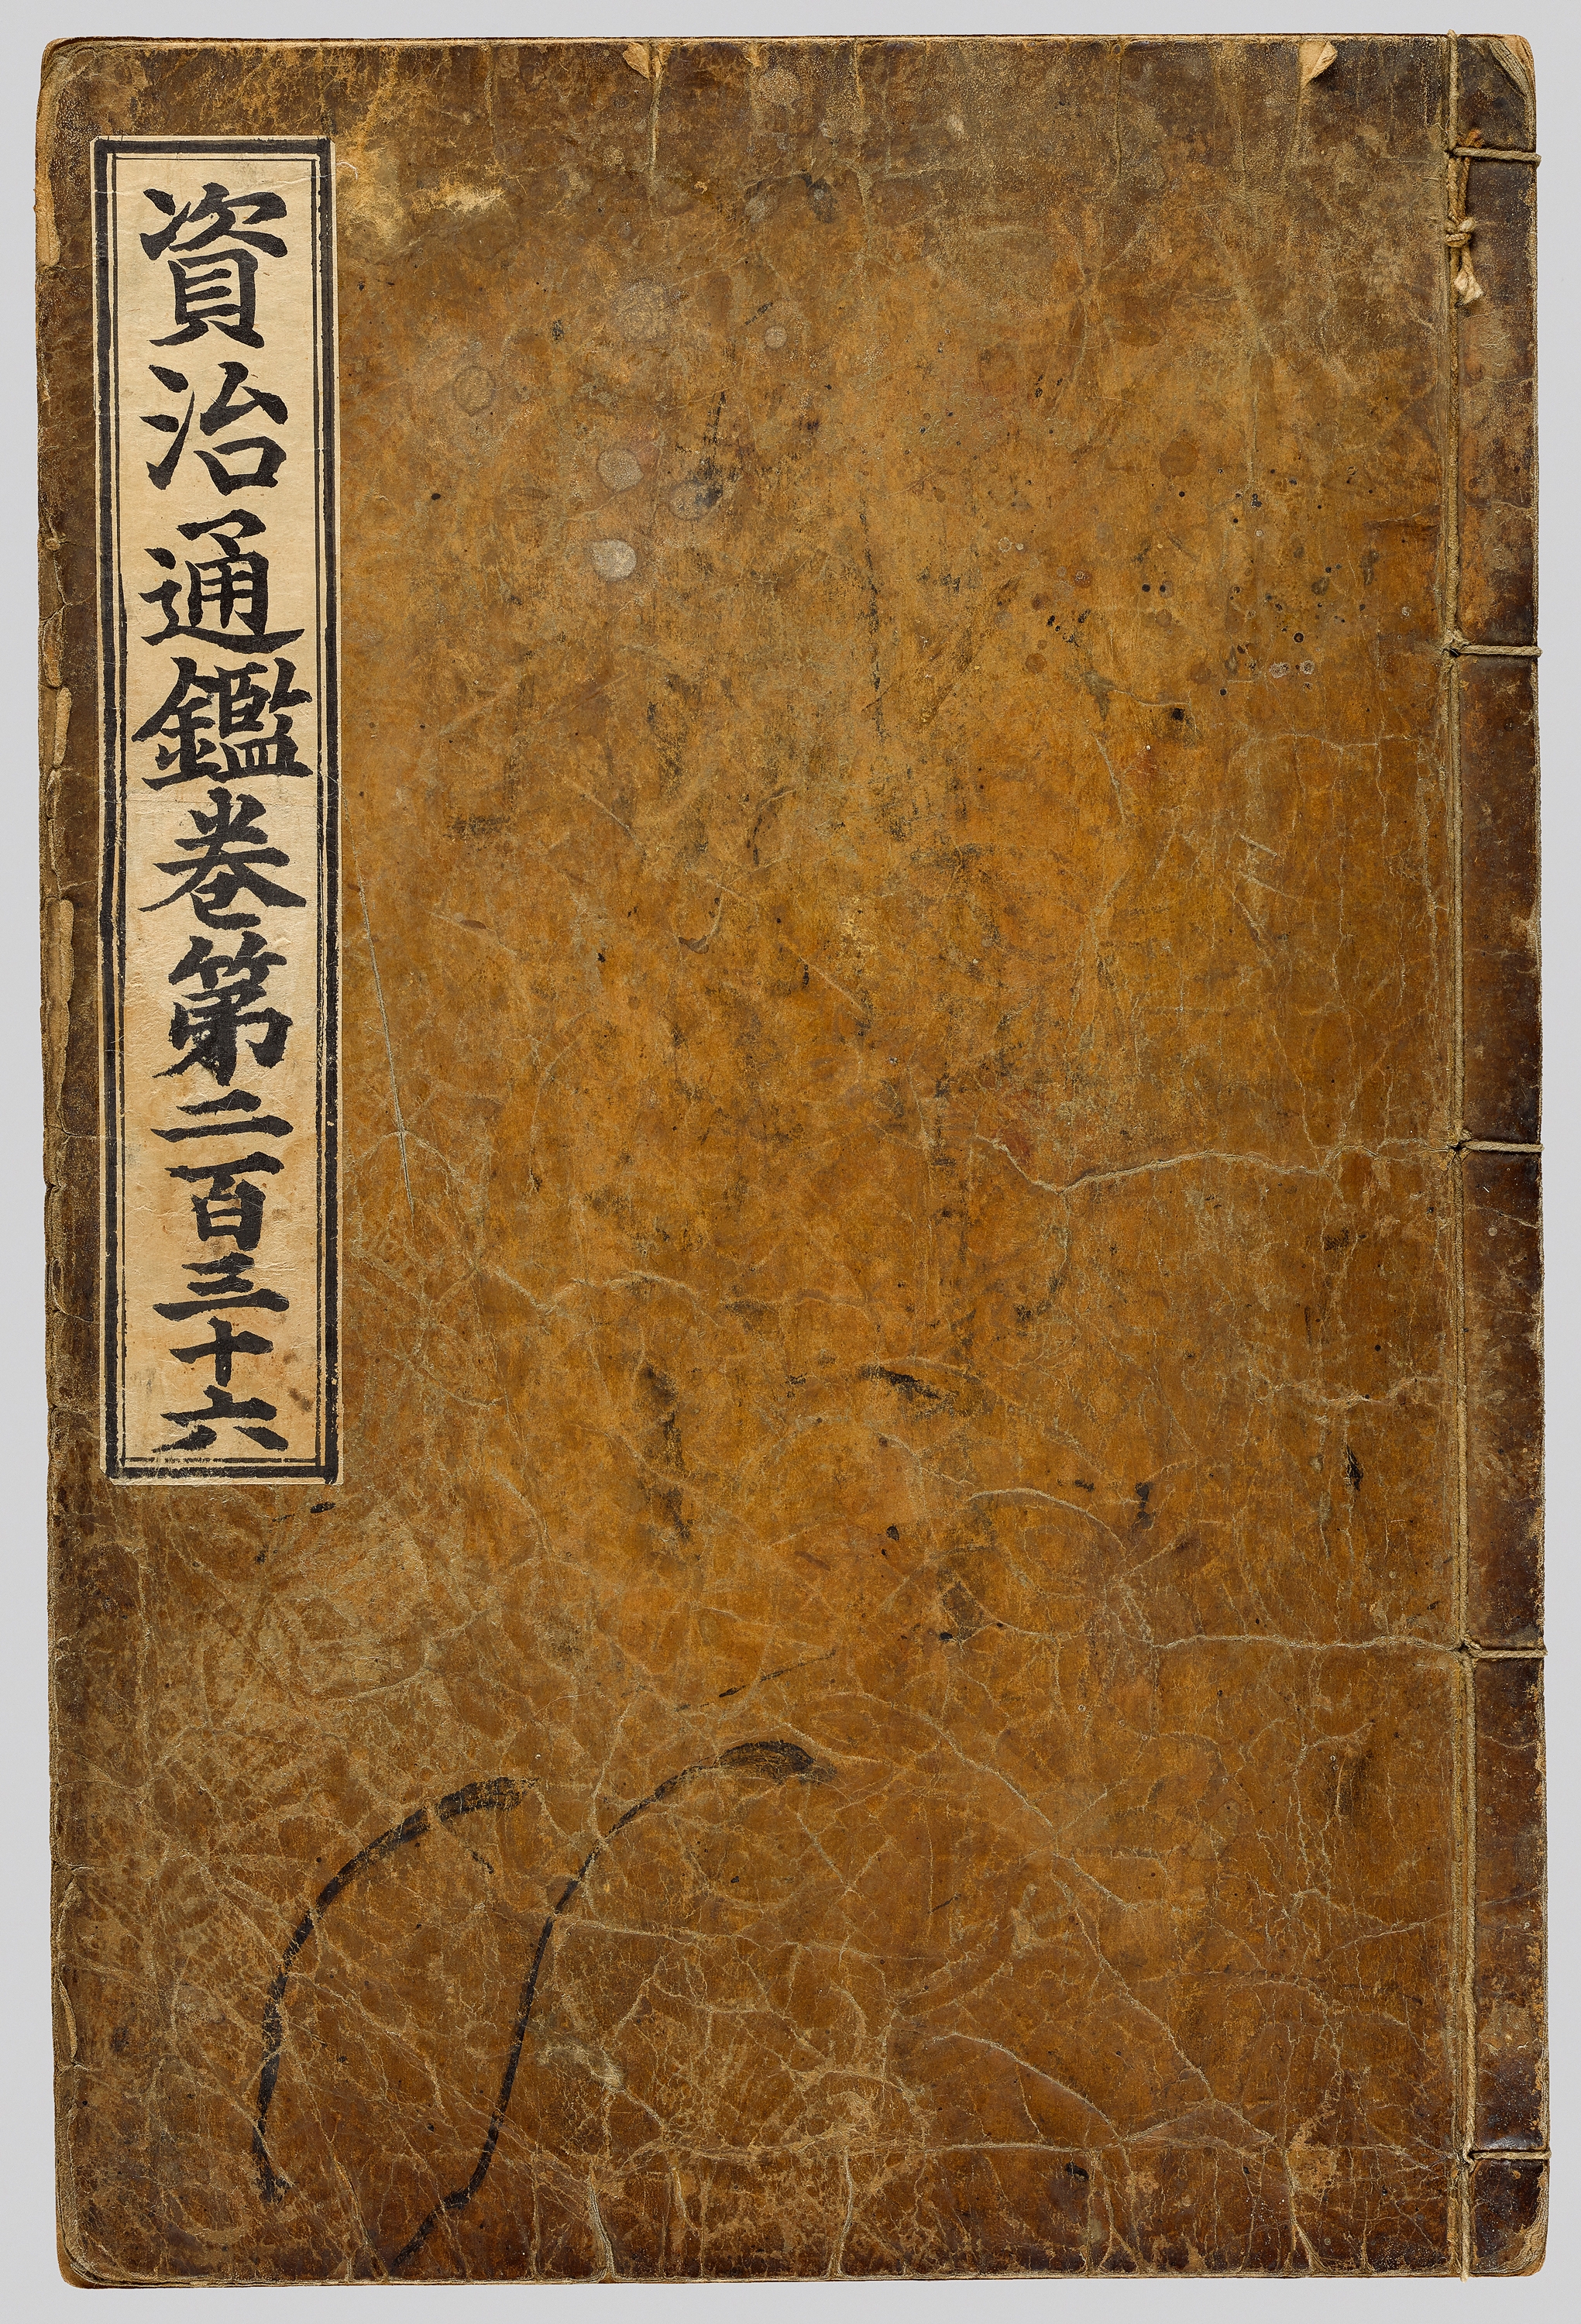 資治通鑑卷第二百三十六